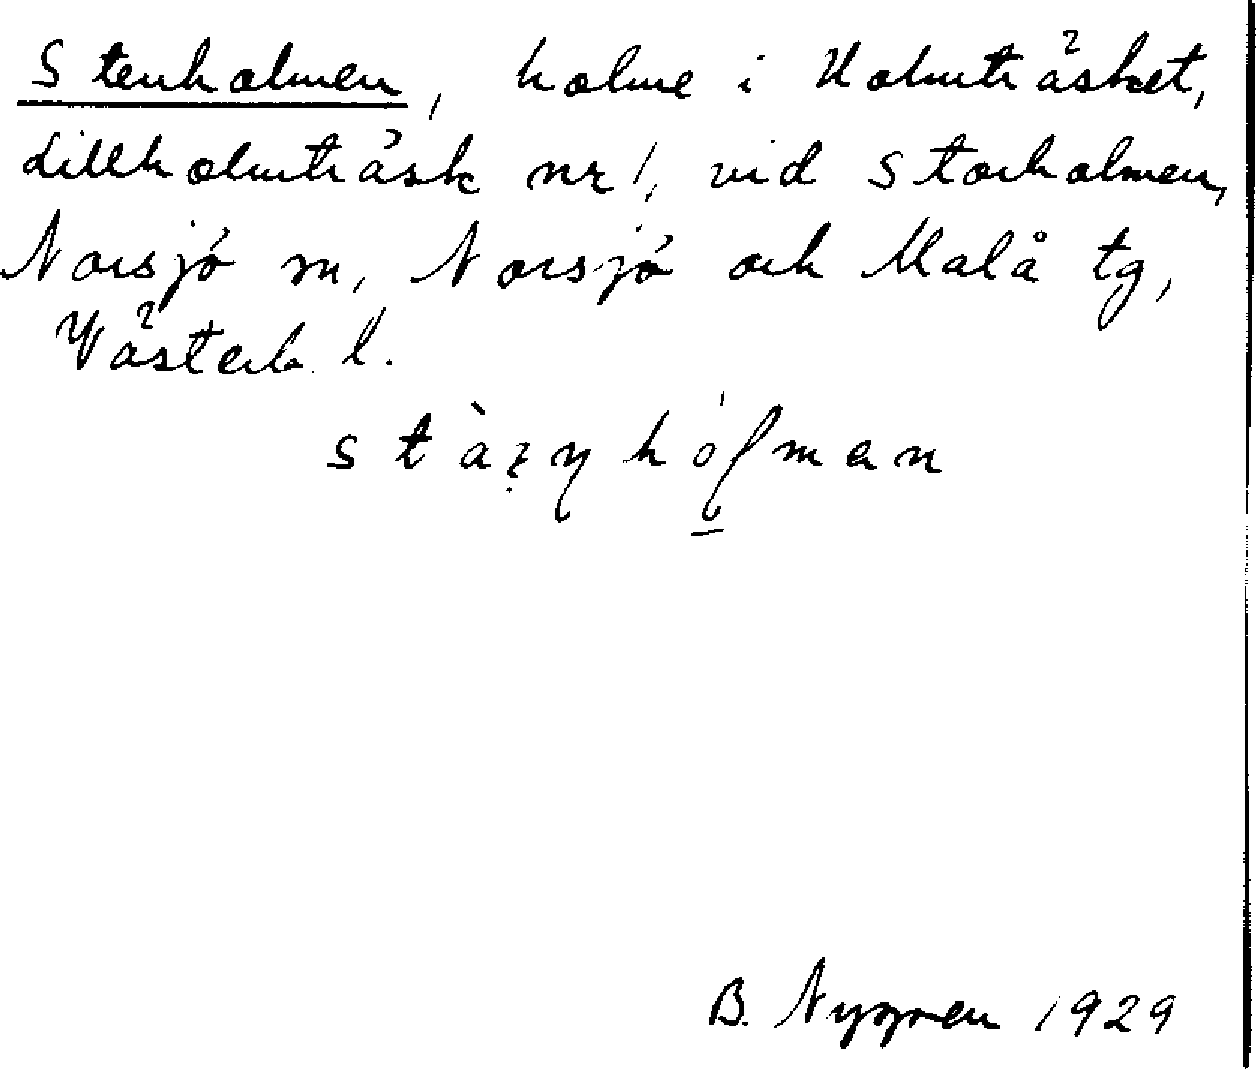 Stenholmen, holme i Holmträsket,
Lillholmträsk nr 1, vid Storholmen,
Norsjö sn, Norsjö och Malå tg,
Västerb. l.
B. Nygren 1929